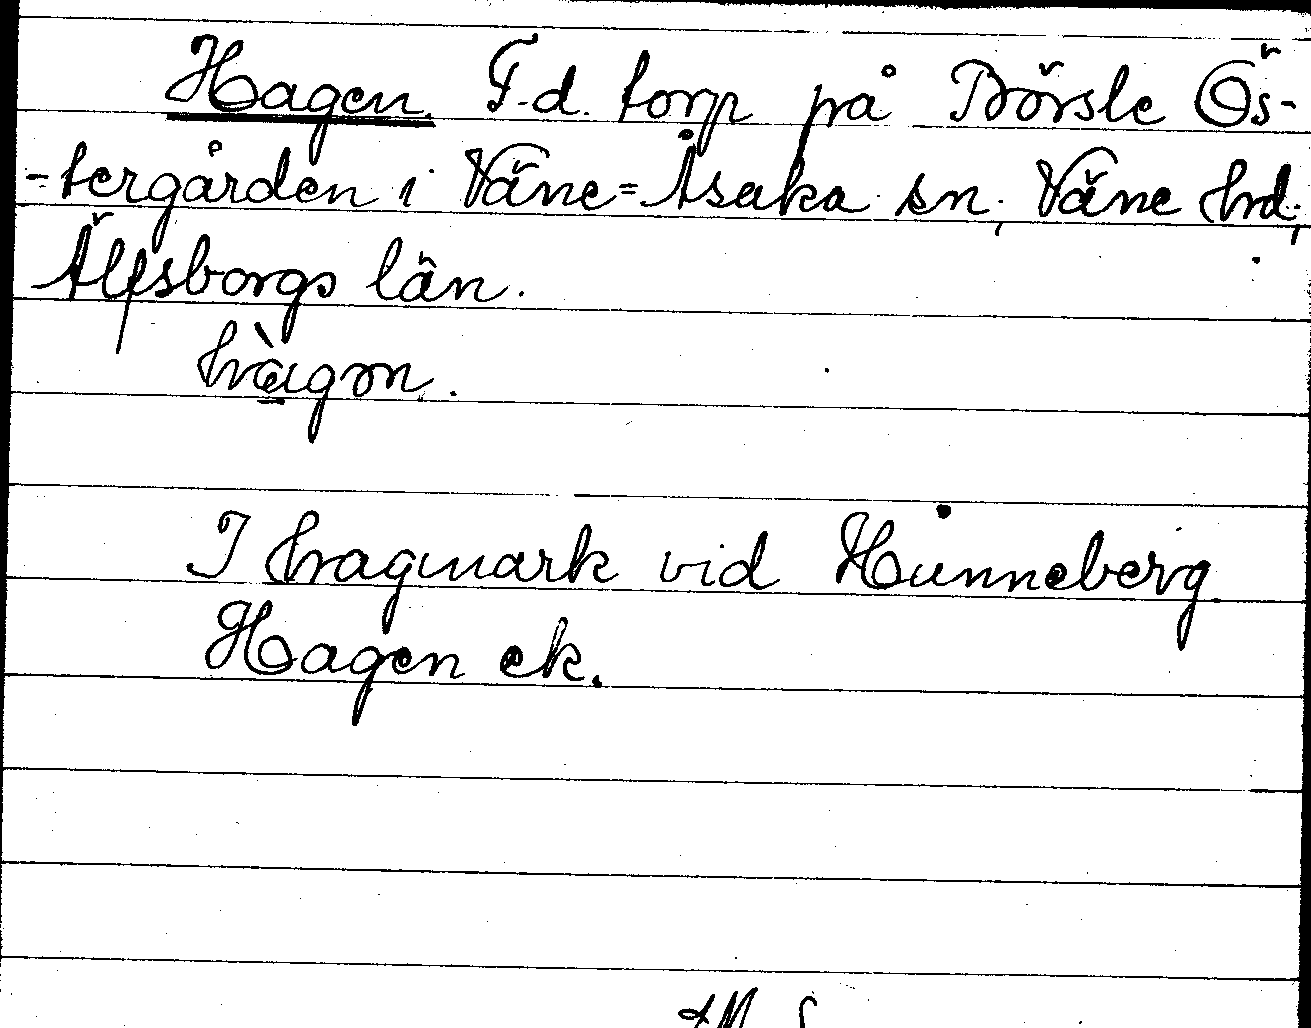 Hagen. F.d. torp på Börsle Ös-
-tergården i Väne=Åsaka sn, Väne hrd,
Älfsborgs län.
hàgən.
I hagmark vid Hunneberg.
Hagen ek.